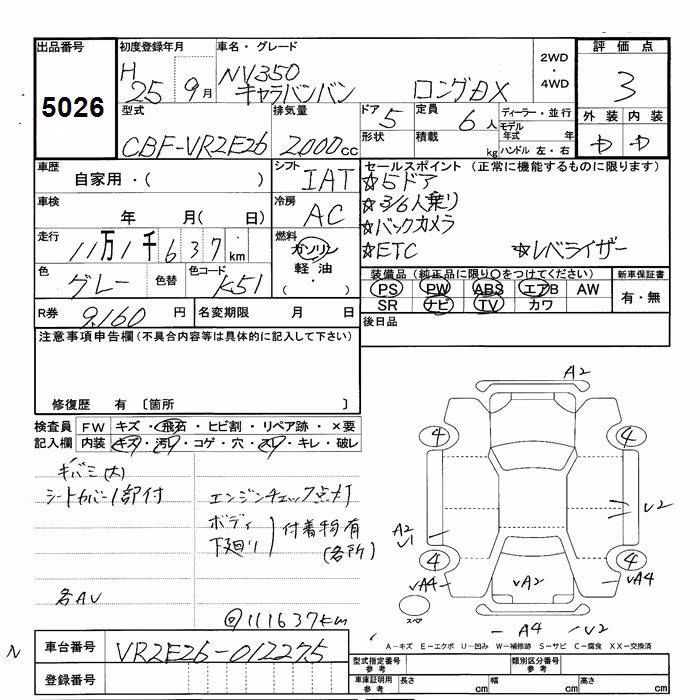 出品番号
5026
初度登録年月
H 25 9月
車名・グレード
NV350
キャラバンバン ロングDX
2WD
・
4WD
評価点
3
型式
CBF-VR2E26
排気量
2000cc
ドア
5
形状
定員
6人
積載
kg
ディーラー・並行
モデル年式 年
ハンドル 左・右
外装 内装
車歴
自家用・( )
シフト
IAT
セールスポイント (正常に機能するものに限ります)
☆5ドア
☆3/6人乗り
☆バックカメラ
☆ETC ☆レベライザー
車検
年 月( 日)
冷房
AC
走行
11万1千637km
燃料
ガソリン
軽油
( ・ )
色
グレー
色替
色コード
K51
装備品 (純正品に限り〇をつけてください)
PS PW ABS エアB AW
SR ナビ TV カワ
新車保証書
有・無
R券
9,160円
名変期限 月 日
後日品
注意事項申告欄(不具合内容等は具体的に記入して下さい)
修復歴 有 〔箇所 〕
検査員記入欄
FW キズ・飛石・ヒビ割・リペア跡・×要
内装 キズ・汚レ・コゲ・穴・スレ・キレ・破レ
キバミ(大)
シートカバー1部付
エンジンチェック点灯
ボディ
下廻り
付着物有
(各所)
各AV
◎111637km
A2
4
4
A2
V1
V2
4
4
vA4
vA2
vA4
スペア
A4
V2
A-キズ E-エクボ U-凹み W-補修跡 S-サビ C-腐食 XX-交換済
N
車台番号
VR2E26-012275
登録番号
型式指定番号
参考
類別区分番号
参考
車庫証明用
参考
長さ cm
幅 cm
高さ cm